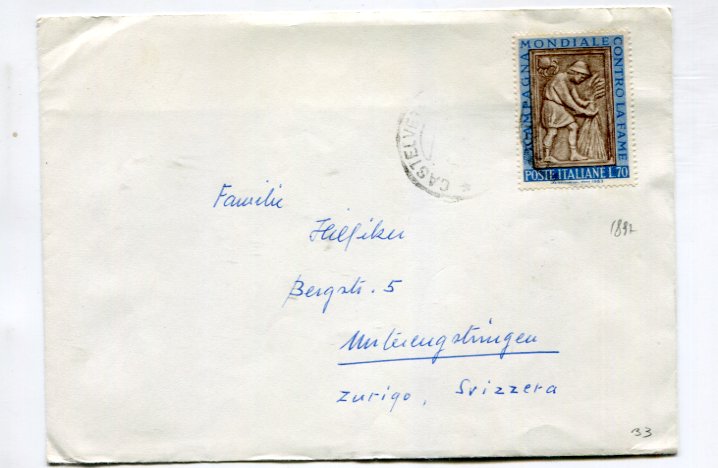 CAMPAGNA MONDIALE CONTRO LA FAME
POSTE ITALIANE L.70
CASTELVE
Familie
Hilfiker
Bergstr. 5
Unterengstringen
Zurigo, Svizzera
33